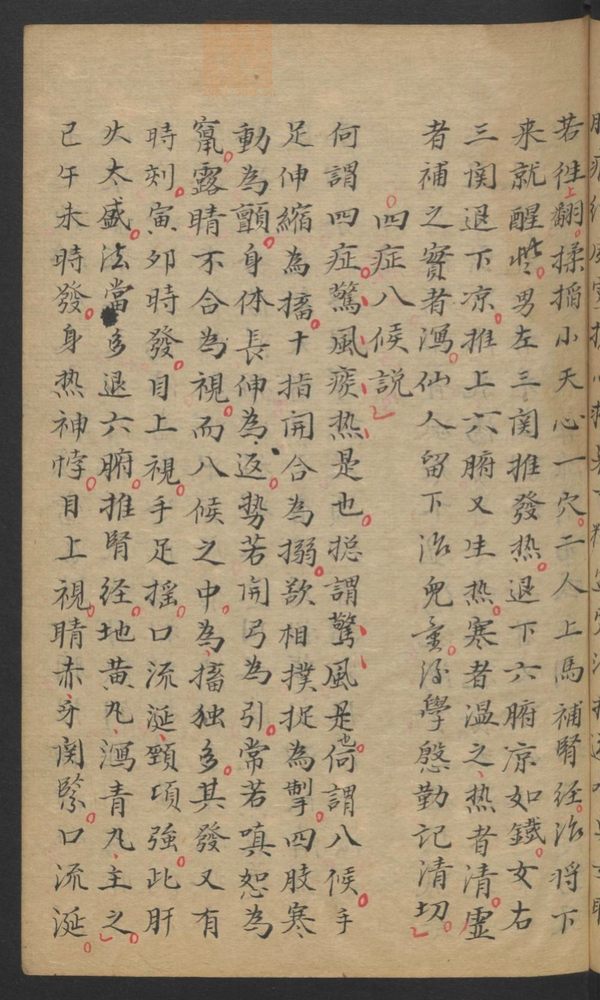 若往上翻。揉搯小天心一穴。二人上馬補腎経。治将下
来就醒些。男左三関推發热。退下六腑凉如鐵。女右
三関退下凉。推上六腑又生热。寒者温之、热者清。虛
者補之實者瀉。仙人留下治兒童。後學慇勤記清切。
四症八候説
何謂四症。驚、風、痰、热、是也。揔謂驚、風是也。何謂八候。手
足伸縮為搐。十指開合為搦。欲相撲捉為掣。四肢寒
動為顫。身体長伸為返。勢若開弓為引。常若嗔恕為
竄。露睛不合為視。而八候之中。為搐独多。其發又有
時刻。寅夘時發。目上視。手足揺。口流涎。頸項強。此肝
火太盛。法當多退六腑。推腎経。地黄丸、瀉青丸、主之。
已午未時發。身热神悸。目上視。睛赤、牙関緊。口流涎。